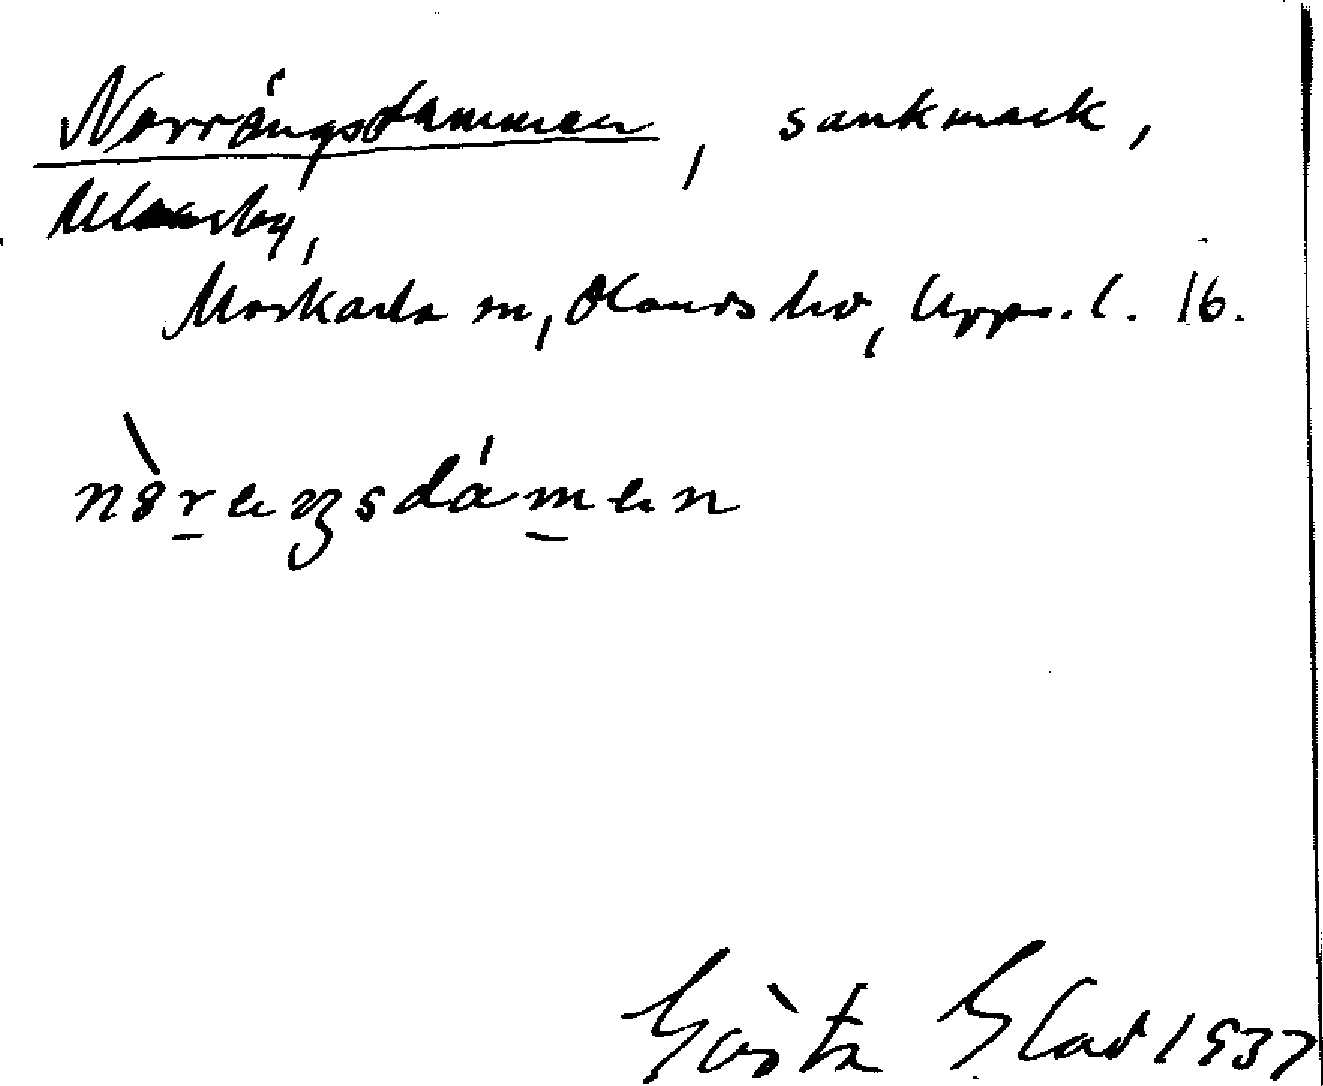 Norrängsdammen, sankmark,
Morkarla sn, Olands hd, Upps. l. 16.
Gösta Glad 1937